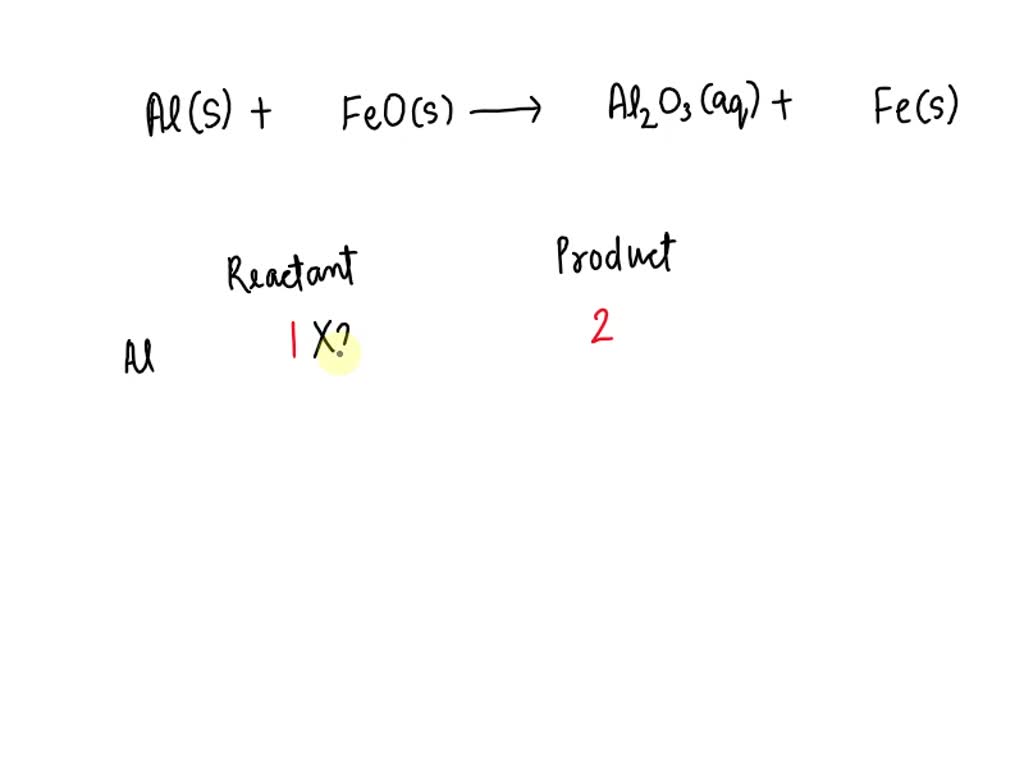 Al(s) + FeO(s) ⟶ Al₂O₃(aq) + Fe(s)
Reactant Product
Al 1 X? 2